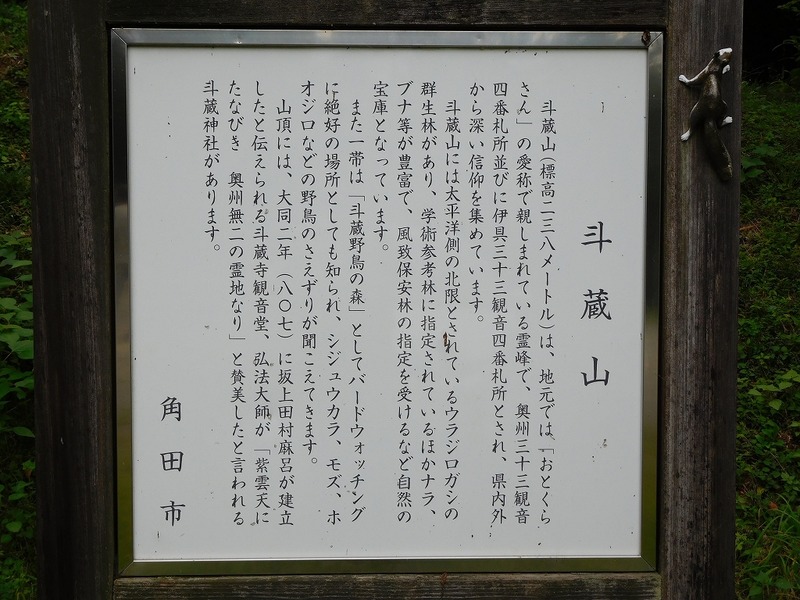 斗蔵山
斗蔵山(標高二三八メートル)は、地元では「おとくら
さん」の愛称で親しまれている霊峰で、奥州三十三観音
四番札所並びに伊具三十三観音四番札所とされ、県内外
から深い信仰を集めています。
斗蔵山には太平洋側の北限とされているウラジロガシの
群生林があり、学術参考林に指定されているほかナラ、
ブナ等が豊富で、風致保安林の指定を受けるなど自然の
宝庫となっています。
また一帯は「斗蔵野鳥の森」としてバードウォッチング
に絶好の場所としても知られ、シジュウカラ、モズ、ホ
オジロなどの野鳥のさえずりが聞こえてきます。
山頂には、大同二年(八〇七)に坂上田村麻呂が建立
したと伝えられる斗蔵寺観音堂、弘法大師が「紫雲天に
たなびき 奥州無二の霊地なり」と賛美したと言われる
斗蔵神社があります。
角田市